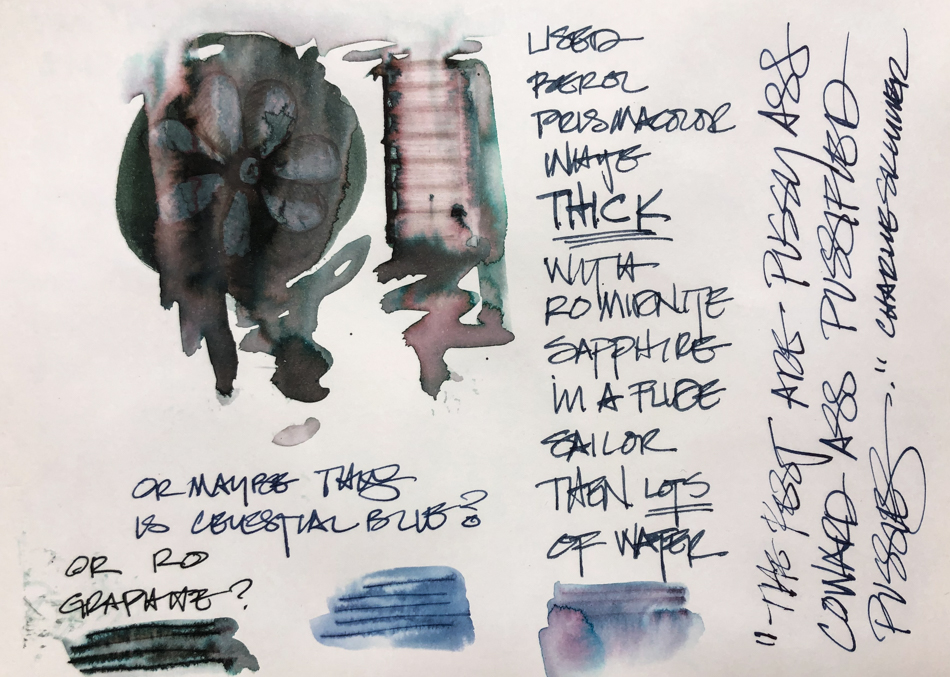 USED
BEROL
PRISMACOLOR
WAYE
THICK
WITH
RO MIDNITE
SAPPHIRE
IN A FUDE
SAILOR
THEN LOTS
OF WATER
OR MAYBE THIS
IS CELESTIAL BLUE?
OR RO
GRAPHITE?
"THE REST ARE PUSSY ASS
COWARD ASS PUSSIFIED
PUSSIES." CHARLIE SKINNER